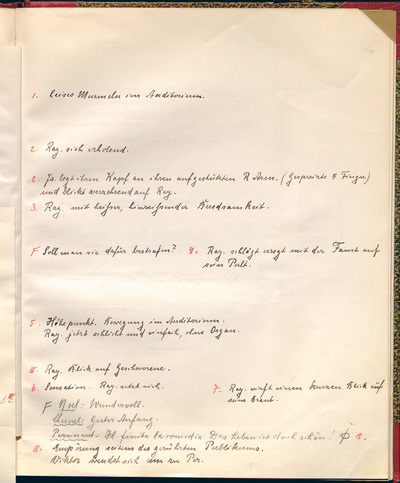 1. Leises Murmeln im Auditorium.
2. Rag. sich erholend.
2. Ja legt ihren Kopf an ihren aufgestützten R Arm. (Gespreizte 5 Finger)
und blickt verzehrend auf Rag.
3. Rag. mit heißer, hinreißender Beredsamkeit.
F Soll man sie dafür bestrafen? 4. Rag. schlägt erregt mit der Faust auf
sein Pult.
5. Höhepunkt. Bewegung im Auditorium.
Rag. jetzt schlicht und einfach, ohne Organ.
Rag. Blick auf Geschworene.
6. Sensation. Rag. setzt sich. 7. Rag. wirft einen kurzen Blick auf
seine Braut.
F Wundervoll.
Guter Anfang.
finita la comedia Das Leben ist doch schön! 8.
8. Empörung seitens des gerührten Publikums.
Viktor wendet sich um zu Per.